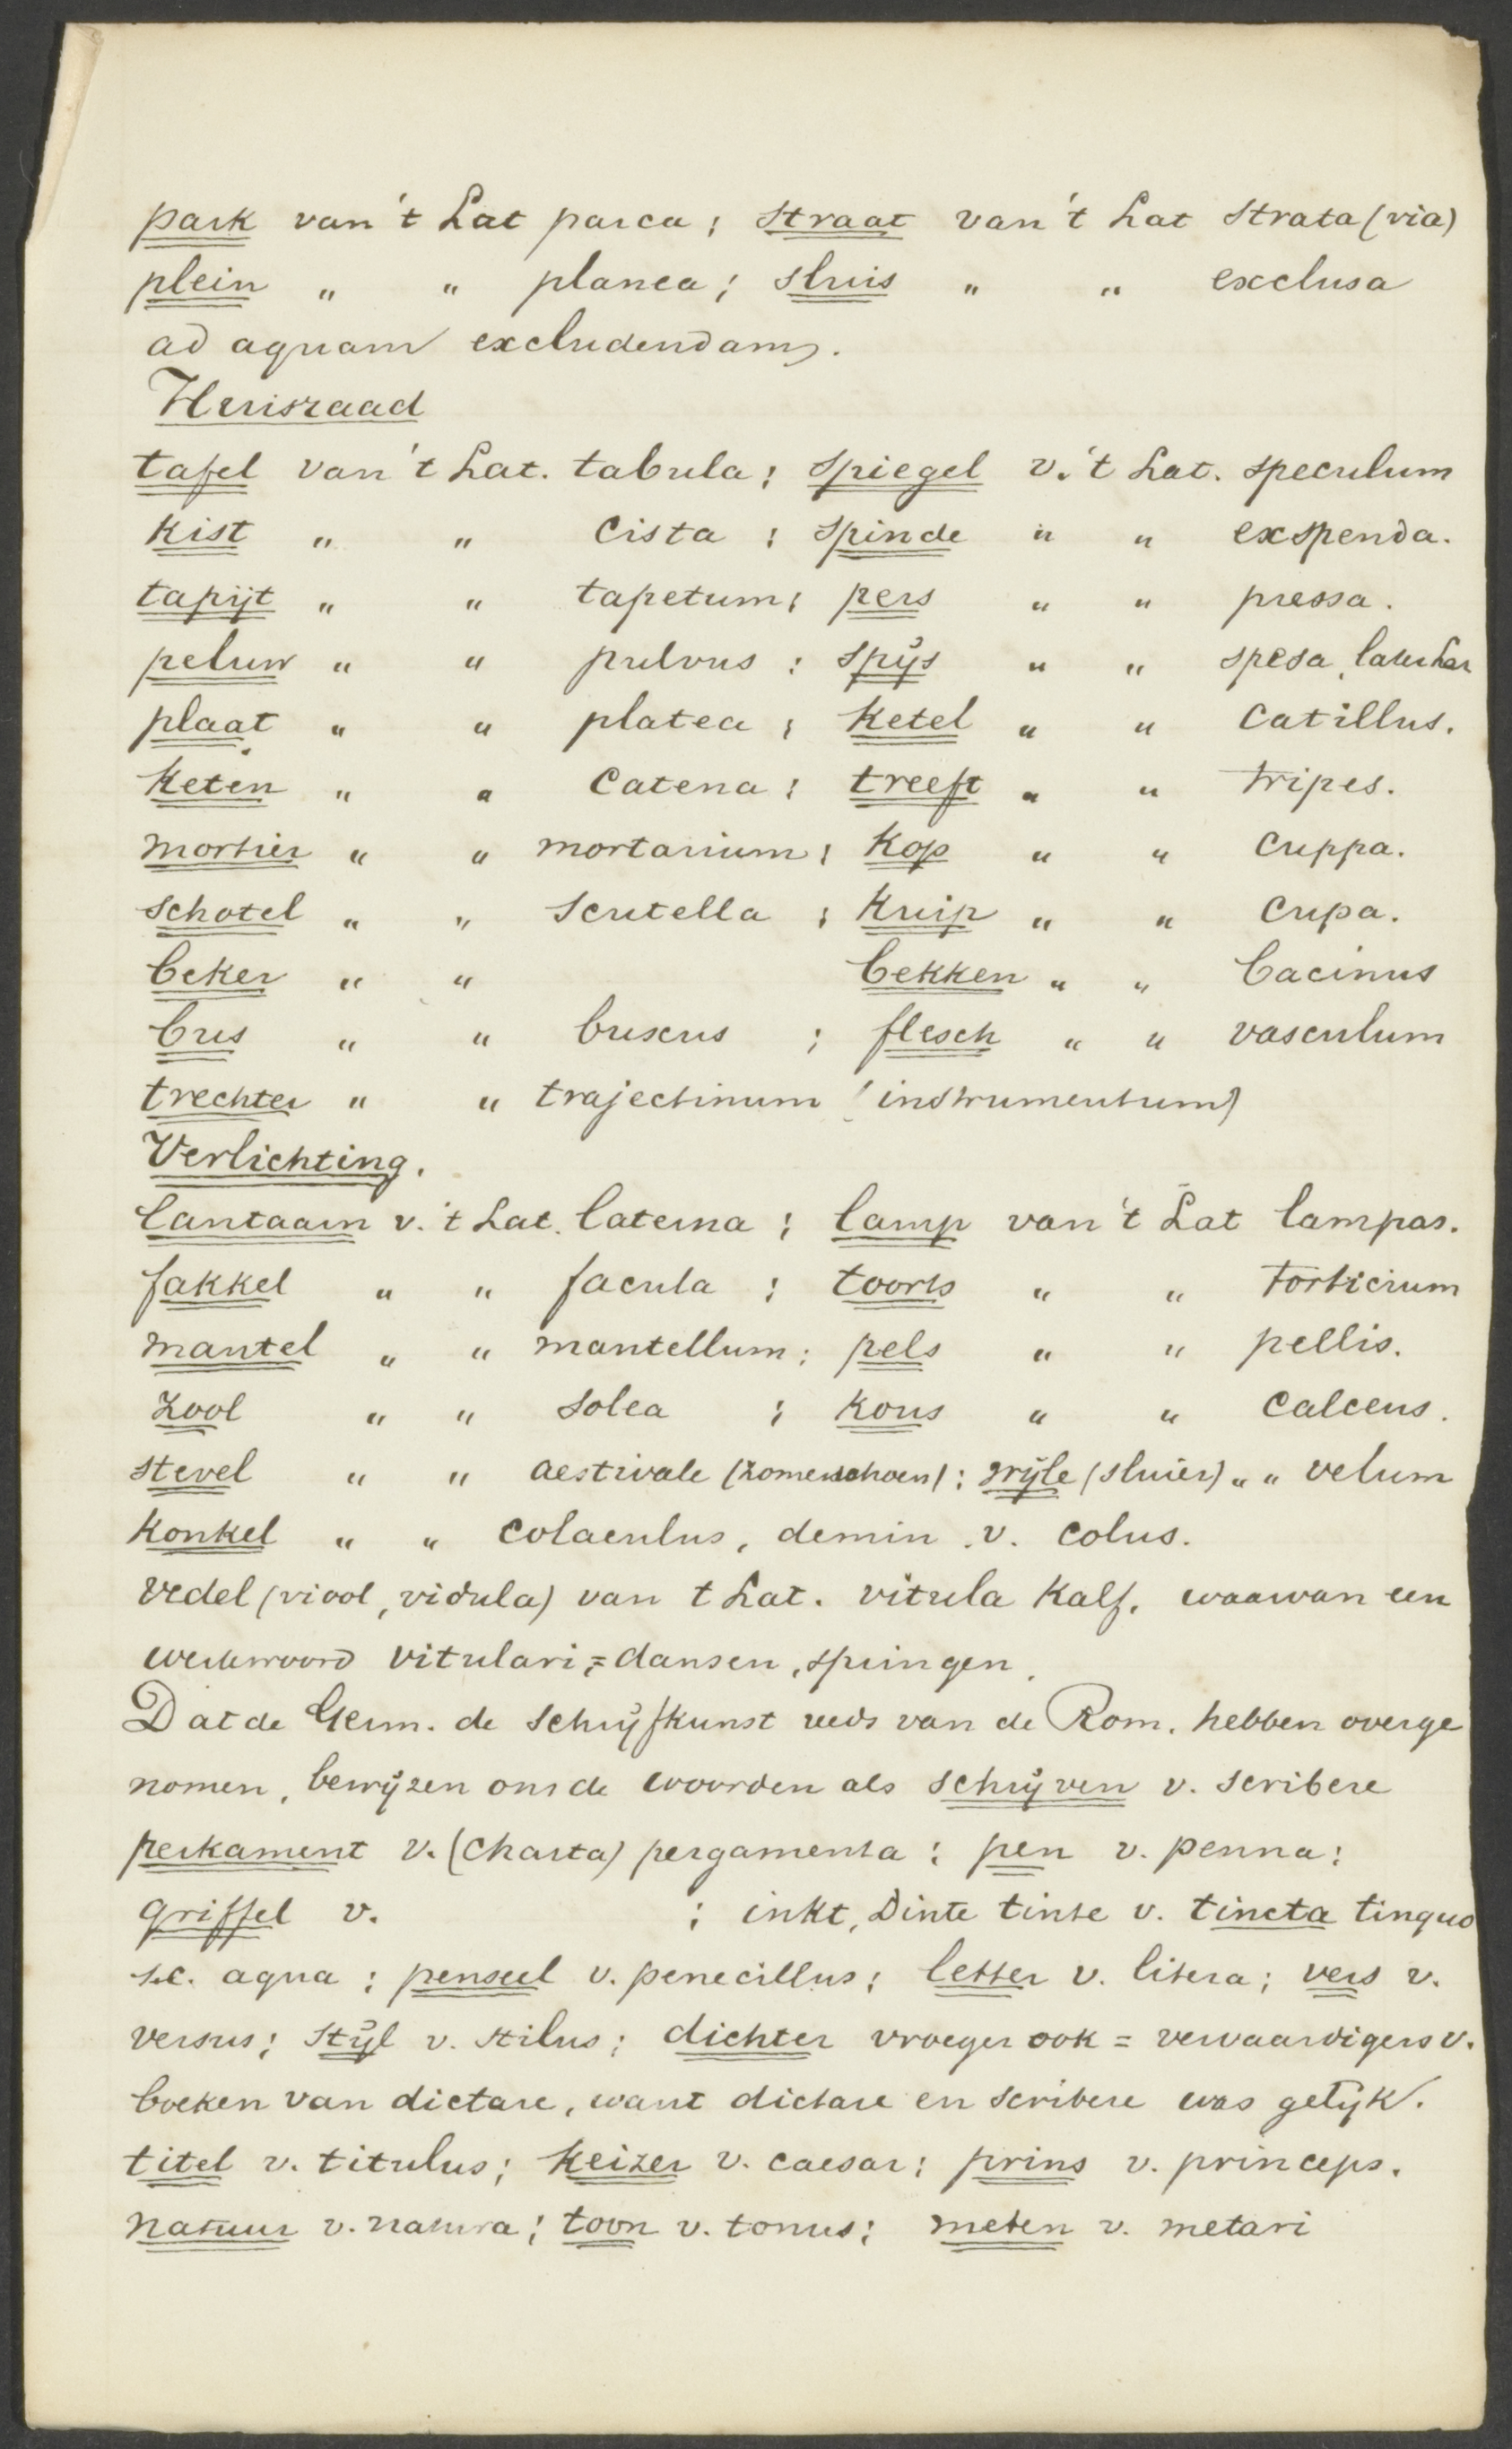 park van 't Lat parca; straat van 't Lat strata (via)
plein " " planea; sluis " " exclusa
ad aquam excludendam.
Huisraad
tafel van 't Lat. tabula; spiegel v. 't Lat. speculum
kist " " cista; spinde " " exspenda.
tapijt " " tapetum; pers " " pressa.
peluw " " pulvus; spijs " " spesa, later Lat
plaat " " platea; ketel " " catillus.
keten " " catena; treeft " " tripes.
mortier " " mortarium; kop " " cuppa.
schotel " " scutella; kuip " " cupa.
beker " " bekken " " bacinus
bus " " buxus; flesch " " vasculum
trechter " " trajectinum (instrumentum)
Verlichting.
lantaarn v. 't Lat. laterna; lamp van 't Lat lampas.
fakkel " " facula; toorts " " torticium
mantel " " mantellum; pels " " pellis.
zool " " solea; kous " " calceus.
stevel " " aestivale (zomerschoen); wijle (sluier) " " velum
konkel " " colaculus, demin. v. colus.
vedel (viool, vidula) van t Lat. vitula kalf, waarvan een
werkwoord vitulari, = dansen, springen.
Dat de Germ. de schrijfkunst reeds van de Rom. hebben overge
nomen, bewijzen ons de woorden als schrijven v. scribere
perkament v. (charta) pergamenta; pen v. penna;
griffel v. ; inkt, Dinte tinte v. tincta tinguo
sc. aqua; penseel v. penecillus; letter v. litera; vers v.
versus; stijl v. stilus; dichter vroeger ook = vervaardigers v.
boeken van dictare, want dictare en scribere was gelijk.
titel v. titulus; keizer v. caesar; prins v. princeps.
natuur v. natura; toon v. tonus; meten v. metari